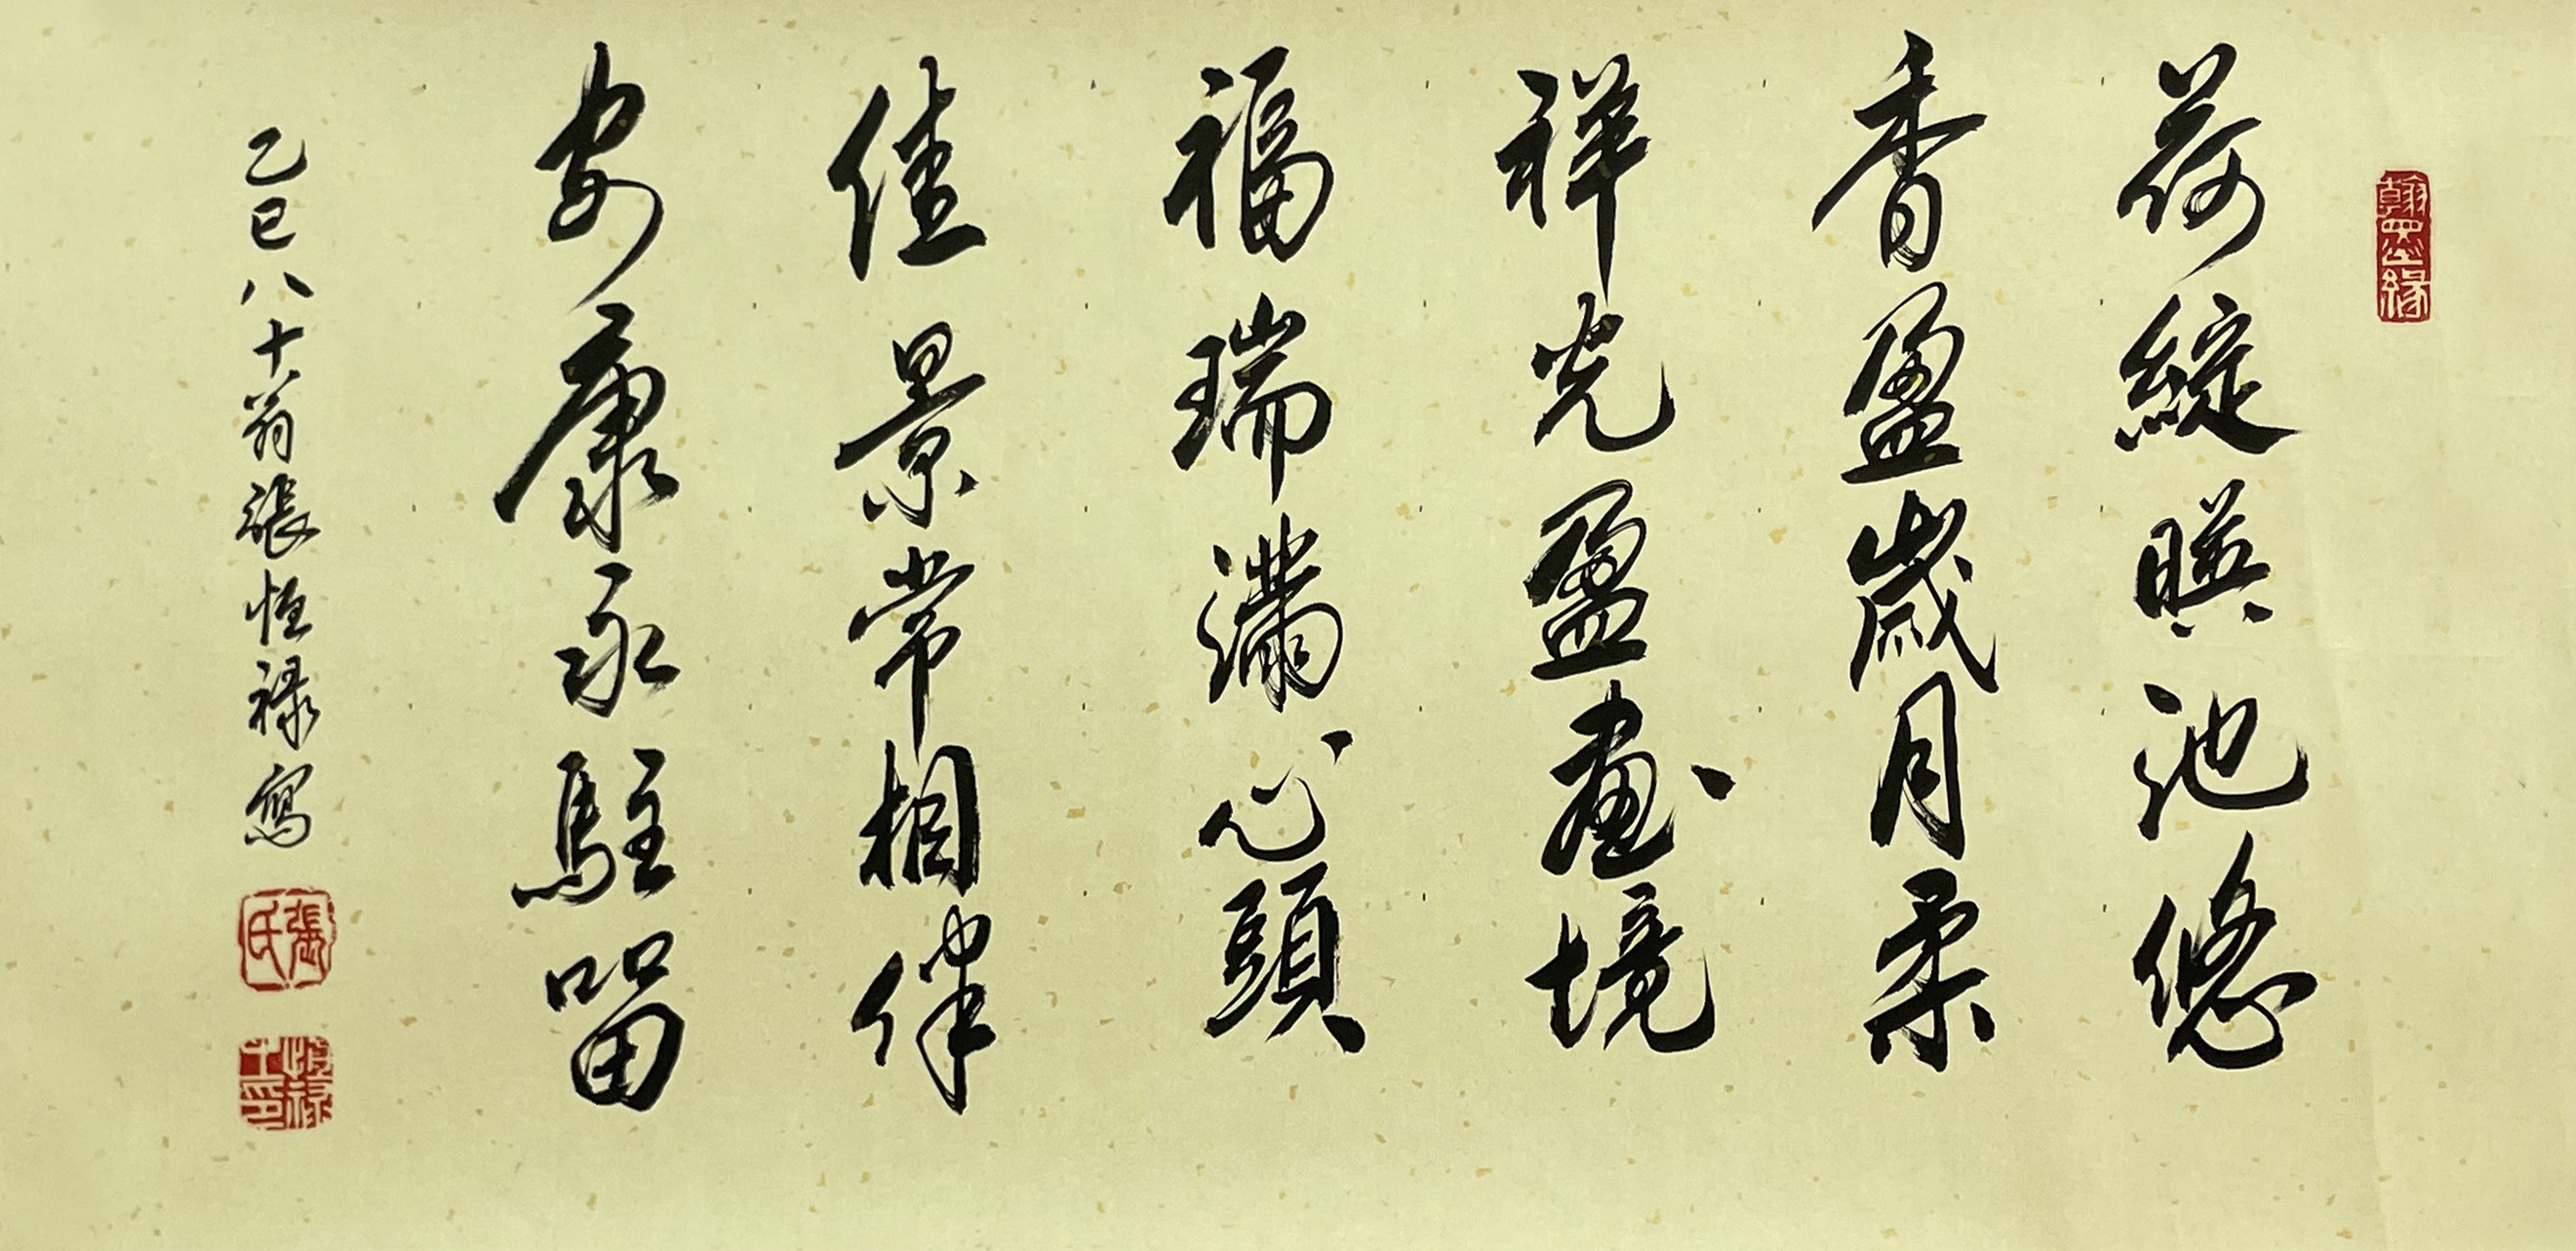 翰墨緣
荷綻暎池悠
香盈歲月柔
祥光盈畫境
福瑞滿心頭
佳景常相伴
安康永駐留
乙巳八十翁張恒祿寫
張氏
恒祿之印